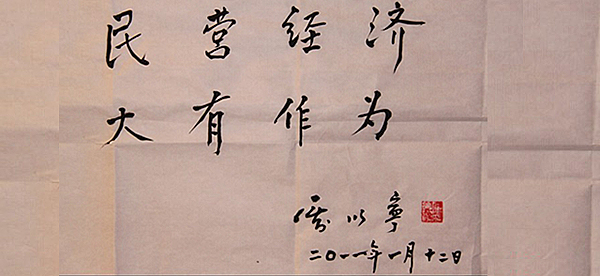 民营经济
大有作为
厉以宁
二〇一一年一月十二日